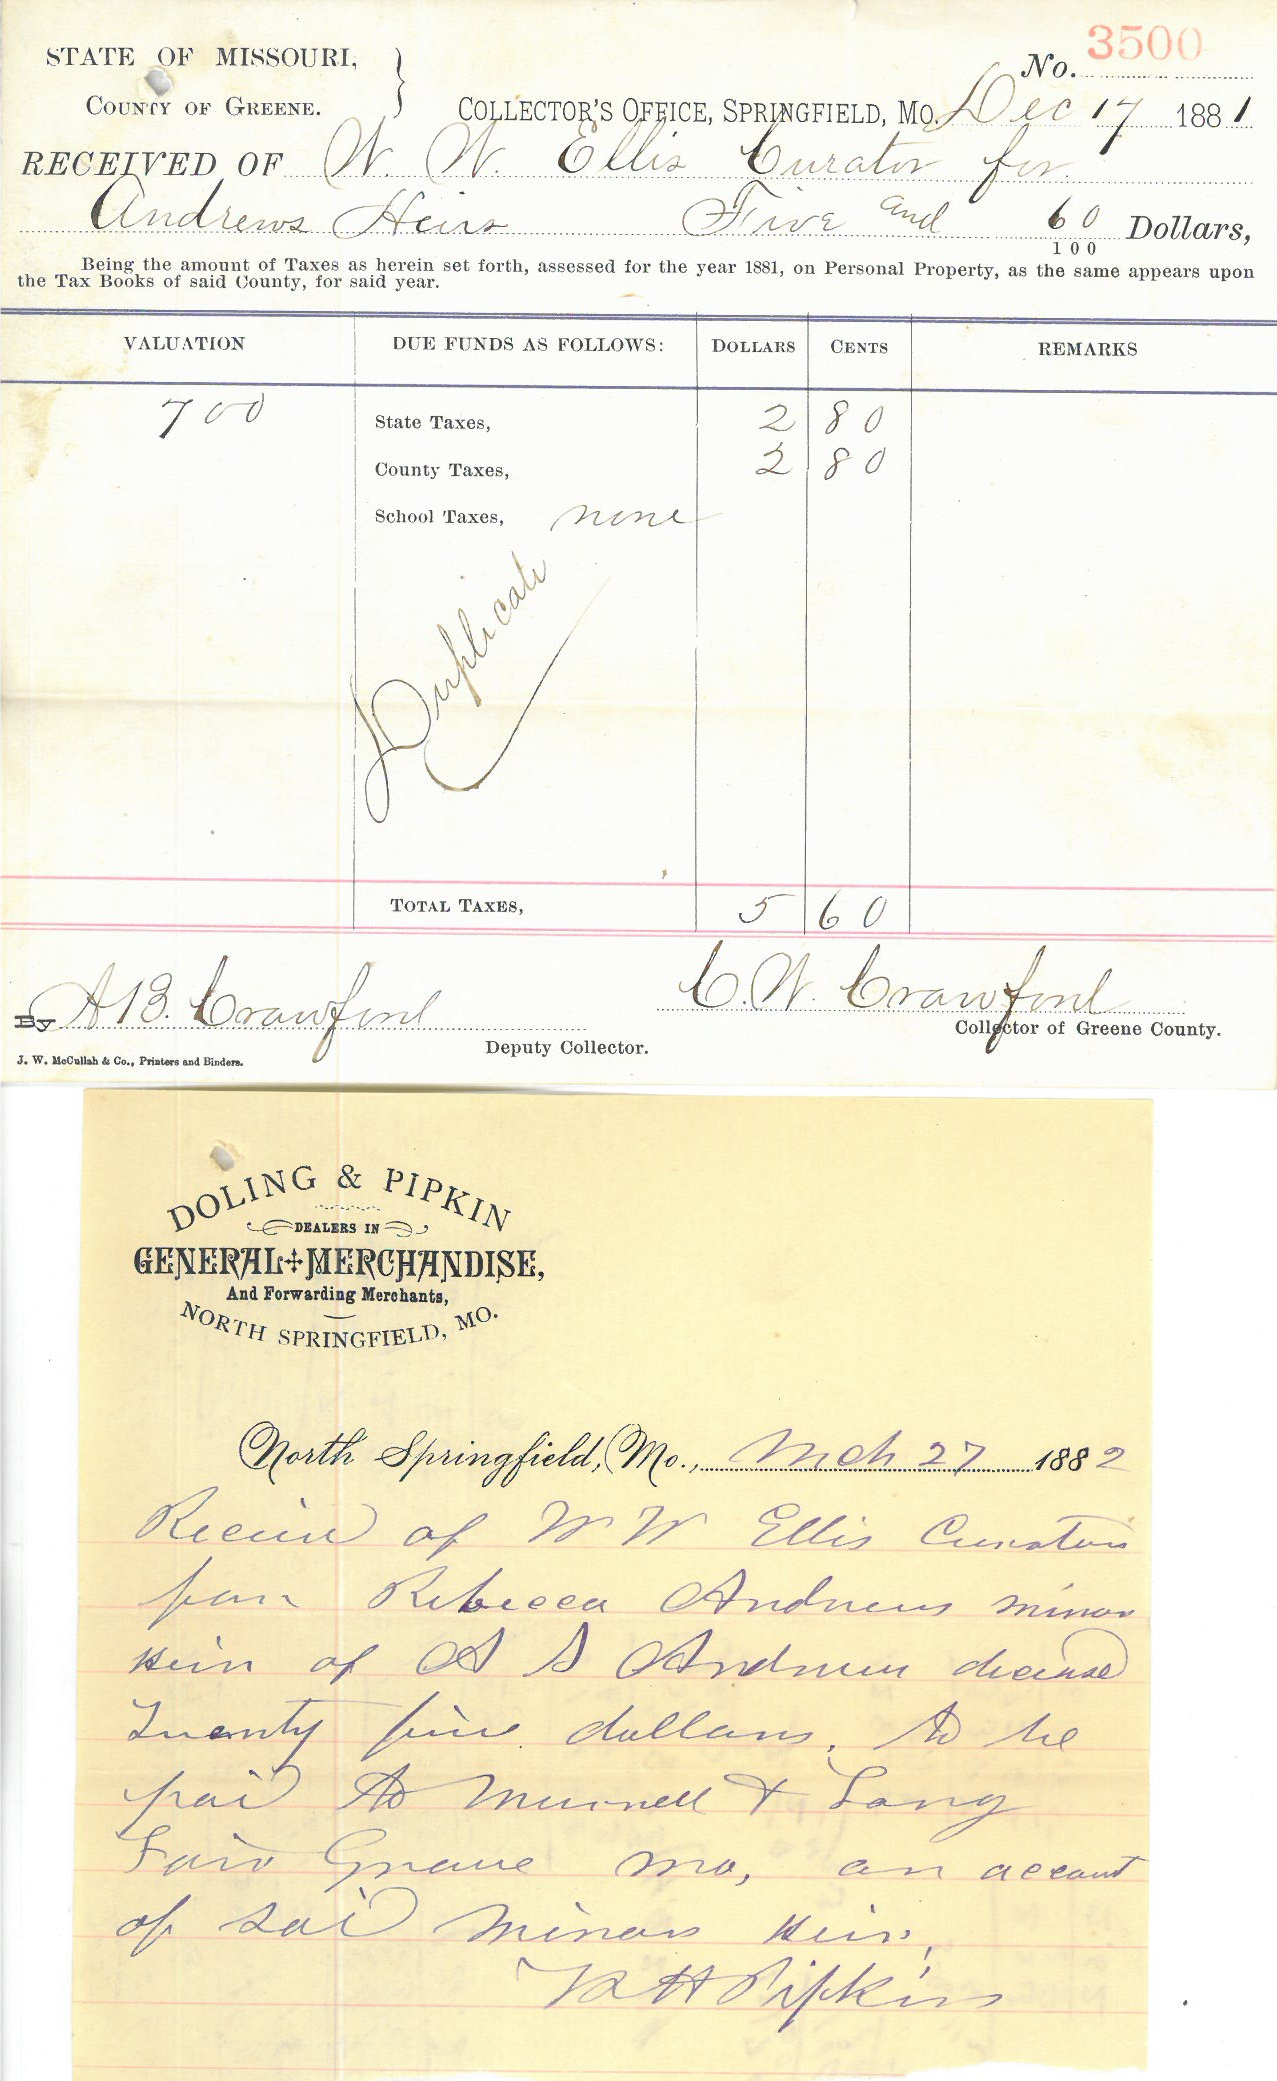 STATE OF MISSOURI,
COUNTY OF GREENE.
No. 3500
COLLECTOR'S OFFICE, SPRINGFIELD, MO. Dec 17 1881
RECEIVED OF W. W. Ellis Curator for
Andrews Heirs Five and 60/100 Dollars,
Being the amount of Taxes as herein set forth, assessed for the year 1881, on Personal Property, as the same appears upon
the Tax Books of said County, for said year.
VALUATION DUE FUNDS AS FOLLOWS: DOLLARS CENTS REMARKS
700 State Taxes, 2 80
County Taxes, 2 80
School Taxes, none
Duplicate
TOTAL TAXES, 5 60
By A B. Crawford C. W. Crawford
Collector of Greene County.
Deputy Collector.
J. W. McCullah & Co., Printers and Binders.
DOLING & PIPKIN
DEALERS IN
GENERAL MERCHANDISE,
And Forwarding Merchants,
NORTH SPRINGFIELD, MO.
North Springfield, Mo., Mch 27 1882
Received of W W Ellis Curator
for Rebecca Andrews minor
heir of A S Andrews deceased
Twenty five dollars. to be
paid to Murrell & Long
Fair Grove Mo, on account
of said minor heir,
Pipkin